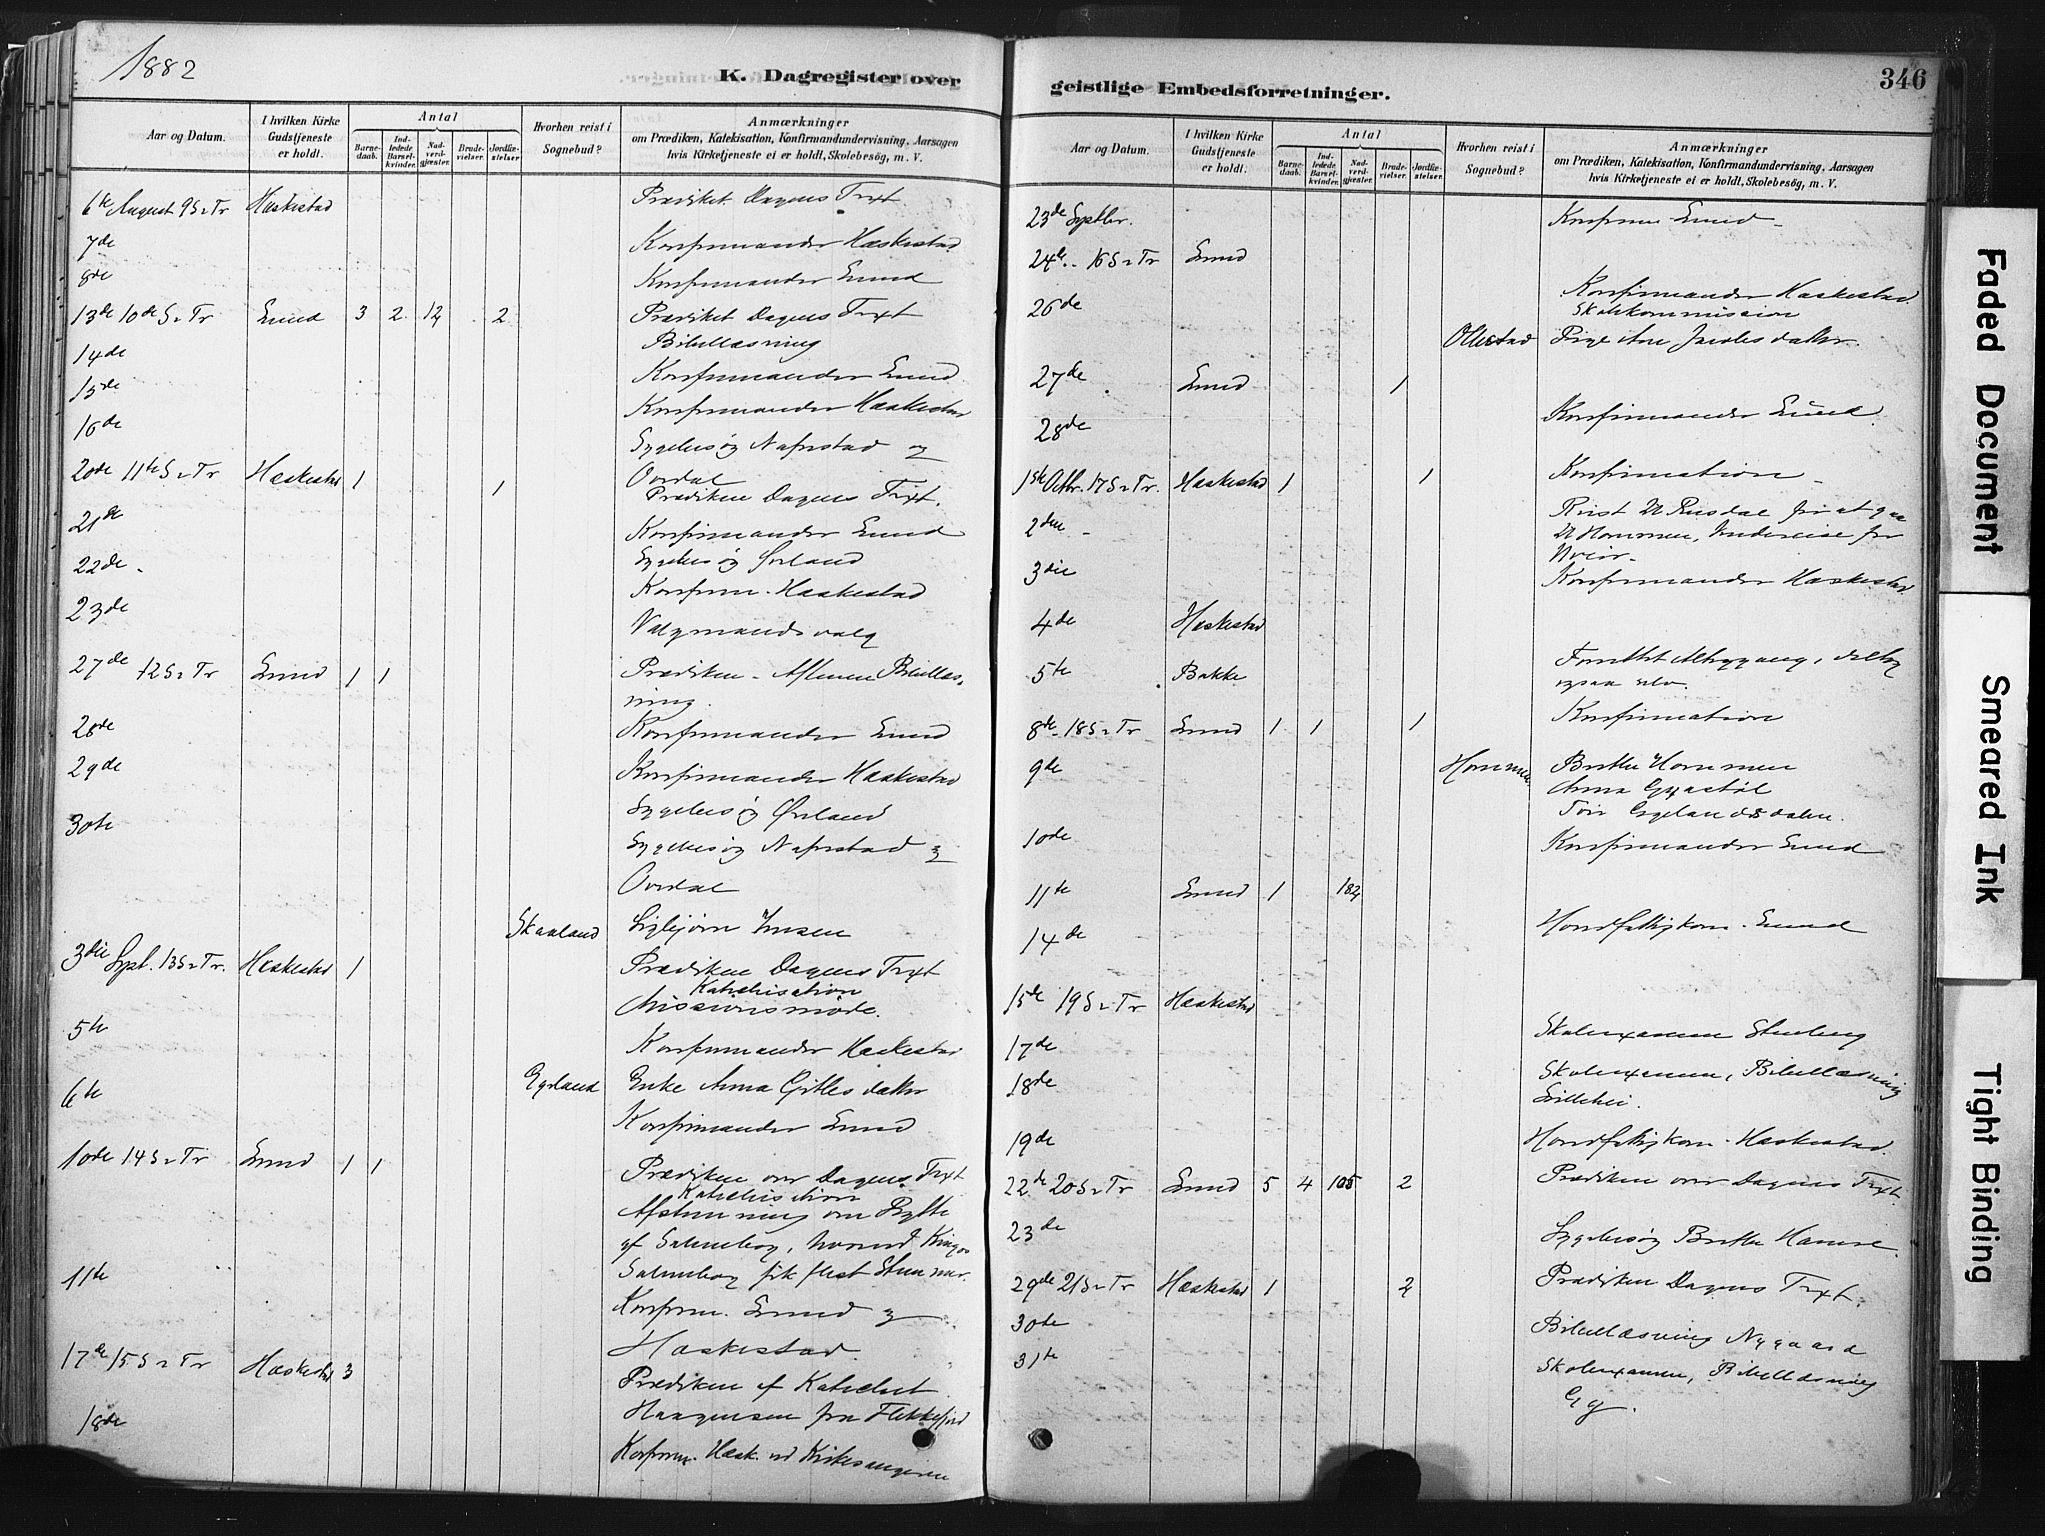 1882
K. Dagregister over
Aar og Datum.
I hvilken Kirke Gudstjeneste er holdt.
Antal
Barne-daab.
Ind-ledede Barsel-kvinder.
Nad-verd-gjæster.
Brude-vielser.
Jordfæ-stelser
Hvorhen reist i Sognebud?
Anmærkninger
om Prædiken, Katekisation, Konfirmandundervisning, Aarsagen
hvis Kirketjeneste ei er holdt, Skolebesög, m. V.
6te August 9 S. e. Tr Heskestad Prædiket Dagens Text
7de Konfirmander Heskestad
8de Konfirmander Lund
13de 10de S. e. Tr Lund 3 2 12 2 Prædiket Dagens Text
14de Bibellæsning
15de Konfirmander Lund
16de Konfirmander Heskestad
Sygebesøg Nafrstad og
20de 11te S. e. Tr Heskestad 1 1 Ovedal
Prædiken Dagens Text.
21de Konfirmander Lund
22de Sygebesøg
Konfirm. Heskestad
23de Valgmandsvalg
27de 12 S. e. Tr Lund 1 1 Prædiken - Aftenen Bibellæs-
ning.
28de Konfirmander Lund
29de Konfirmander Heskestad
Sygebesøg
30te Sygebesøg Nafrstad og
Ovedal
Skaaland Sigbjørn
3die Sept. 13 S. e. Tr. Heskestad 1 Prædiken Dagens Text
Katechisation
Missionsmøde.
5te Konfirmander Heskestad
6te Egeland Enke Anna Gitlesdatter
Konfirmander Lund
10de 14 S. e. Tr Lund 1 1 Prædiken over Dagens Text
Katechisation
Afstemning om Bytte
af Salmebog, hvorved Kingos
11te Salmebog fik flest Stemmer.
Konfirm. Lund og
Heskestad.
17de 15 S. e. Tr Heskestad 3 Prædiken af Katechet
18de Haagensen fra Flekkefjord
Konfirm. Hesk. ved Kirkesangeren
geistlige Embedsforretninger.
346
Aar og Datum.
I hvilken Kirke Gudstjeneste er holdt.
Antal
Barne-daab.
Ind-ledede Barsel-kvinder.
Nad-verd-gjæster.
Brude-vielser.
Jordfæ-stelser.
Hvorhen reist i Sognebud?
Anmærkninger
om Prædiken, Katekisation, Konfirmandundervisning, Aarsagen
hvis Kirketjeneste ei er holdt, Skolebesög, m. V.
23de Septbr. Konfirm Lund
24de 16 S. e. Tr Lund
26de Konfirmander Heskestad
Skolekommission
Ollestad Pige Ane Jacobsdatter.
27de Lund 1
28de Konfirmander Lund.
1ste Octbr. 17 S. e. Tr. Heskestad 1 1 Konfirmation
2den Reist til Rusdal for at gaa
til Hommen, Underveise for
Uveir.
3die Konfirmander Heskestad
4de Heskestad
5te Bakke Forrettet Altergang, deltog
ogsaa selv.
8de 18 S. e. Tr Lund 1 1 1 Konfirmation
9de Hommen Berthe Hommen
Anna
Tore Egelandsdalen.
10de Konfirmander Lund
11te Lund 1 182
14de Hovedfattigkom. Lund
15de 19 S. e. Tr Heskestad
17de Skolexamen Stenberg
18de Skolexamen, Bibellæsning
Lillehei.
19de Hovedfattigkom. Heskestad.
22de 20 S. e. Tr Lund 5 4 105 2 Prædiken over Dagens Text.
23de Sygebesøg Berthe
29de 21 S. e. Tr Heskestad 1 2 Prædiken Dagens Text.
30te Bibellæsning Nygaard
31te Skolexamen, Bibellæsning
Eg.
Faded Document
Smeared Ink
Tight Binding